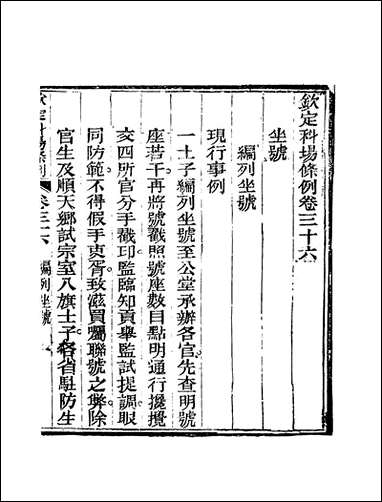 欽定科場條例卷三十六
坐號
編列坐號
現行事例
一士子編列坐號至公堂承辦各官先查明號
座若干再將號戳照號座數目點明通行攙攪
交四所官分手戳印監臨知貢舉監試提調眼
同防範不得假手吏胥致滋買囑聯號之弊除
官生及順天鄉試宗室八旗士子各省駐防生
卷三十六 編列坐號